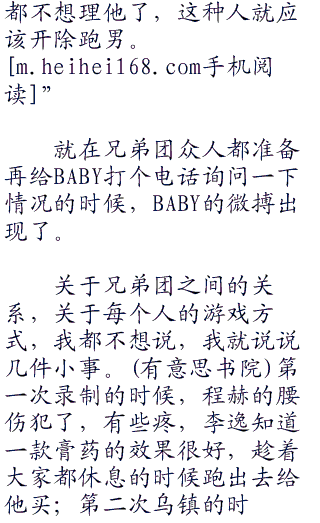 都不想理他了，这种人就应
该开除跑男。
[m.heihei168.com手机阅
读]”
就在兄弟团众人都准备
再给BABY打个电话询问一下
情况的时候，BABY的微搏出
现了。
关于兄弟团之间的关
系，关于每个人的游戏方
式，我都不想说，我就说说
几件小事。(有意思书院)第
一次录制的时候，程赫的腰
伤犯了，有些疼，李逸知道
一款膏药的效果很好，趁着
大家都休息的时候跑出去给
他买；第二次乌镇的时